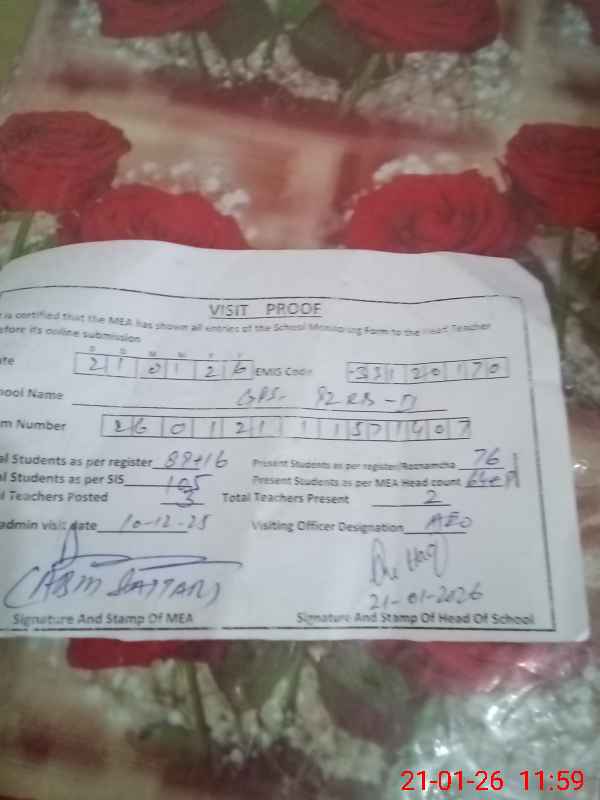 VISIT PROOF
is certified that the MEA has shown all entries of the School Monitoring Form to the Head Teacher
efore its online submission
ate D D M M Y Y 21 01 26 EMIS Code 33120170
hool Name GPS- 92 RB-II
m Number
al Students as per register 89+16 Present Students as per register/Roznamcha 76
al Students as per SIS 105 Present Students as per MEA Head count
l Teachers Posted 3 Total Teachers Present 2
admin visit date 10-12-25 Visiting Officer Designation AEO
21-01-2026
Signature And Stamp Of MEA Signature And Stamp Of Head Of School
21-01-26 11:59